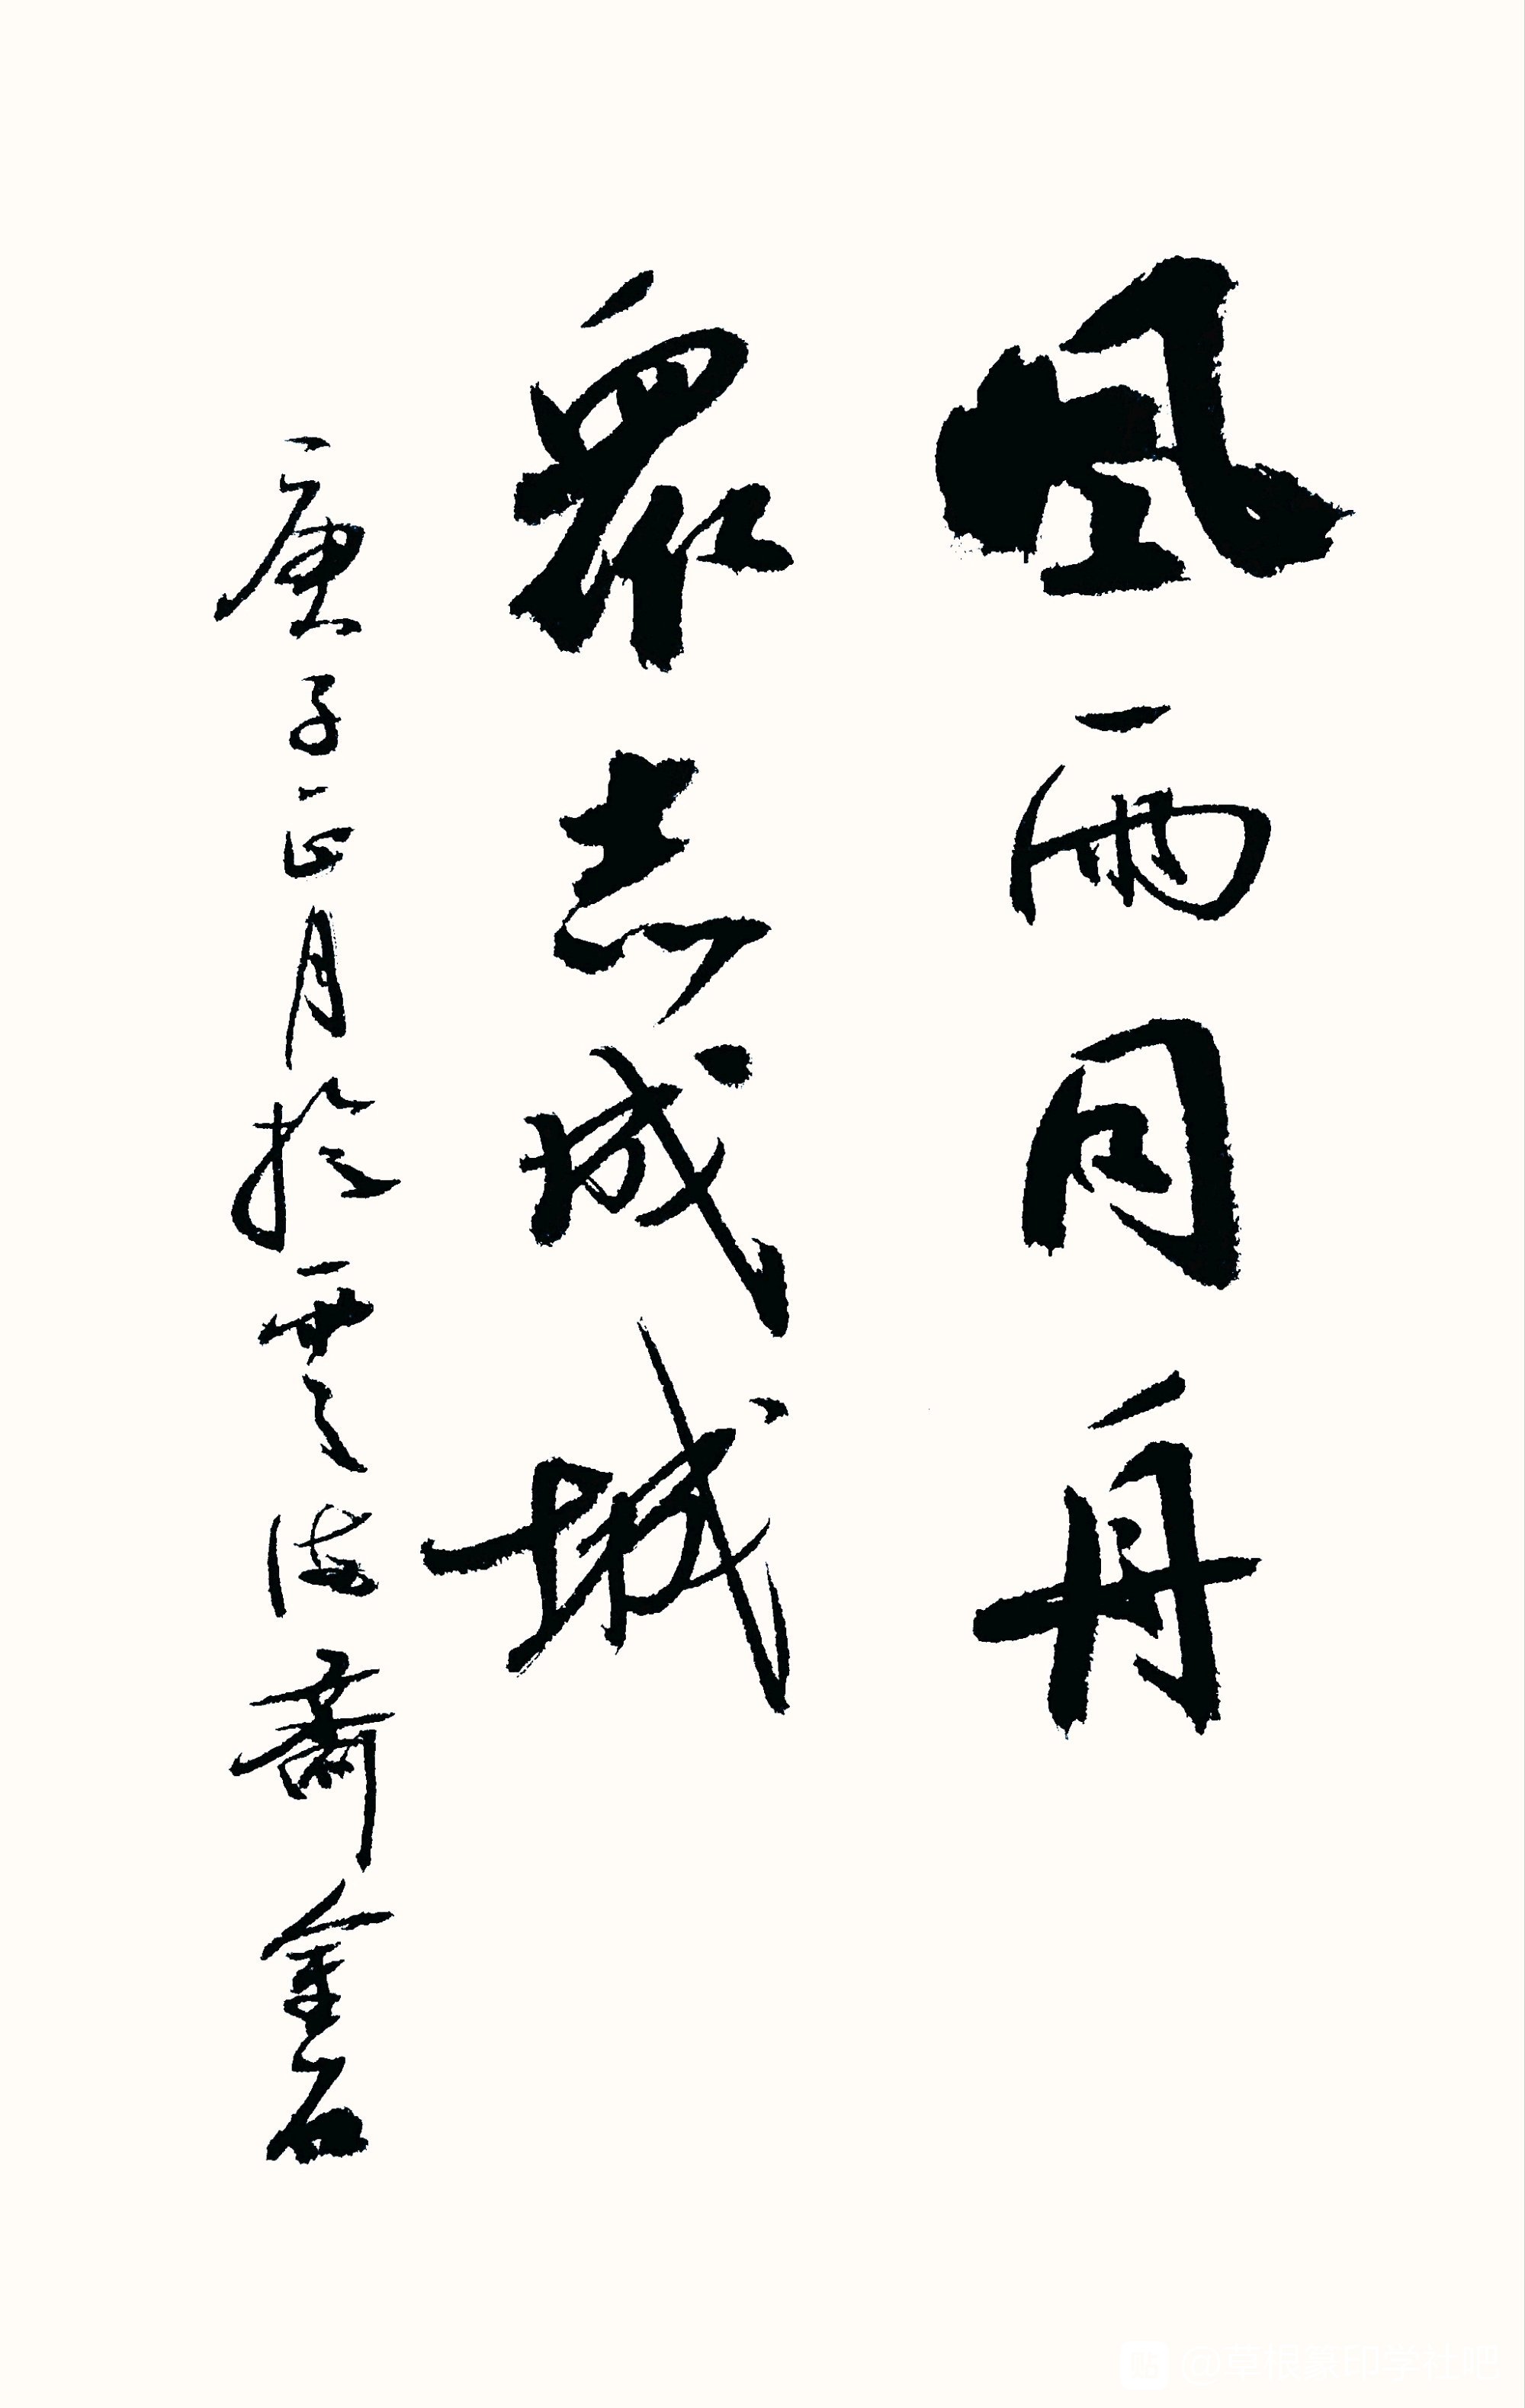 風雨同舟
眾志成城
庚子正月於雲德齋金石